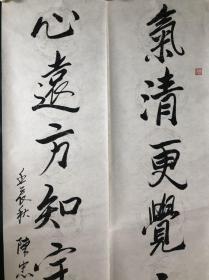 氣清更覺
心遠方知宇
壬辰秋 陳忠